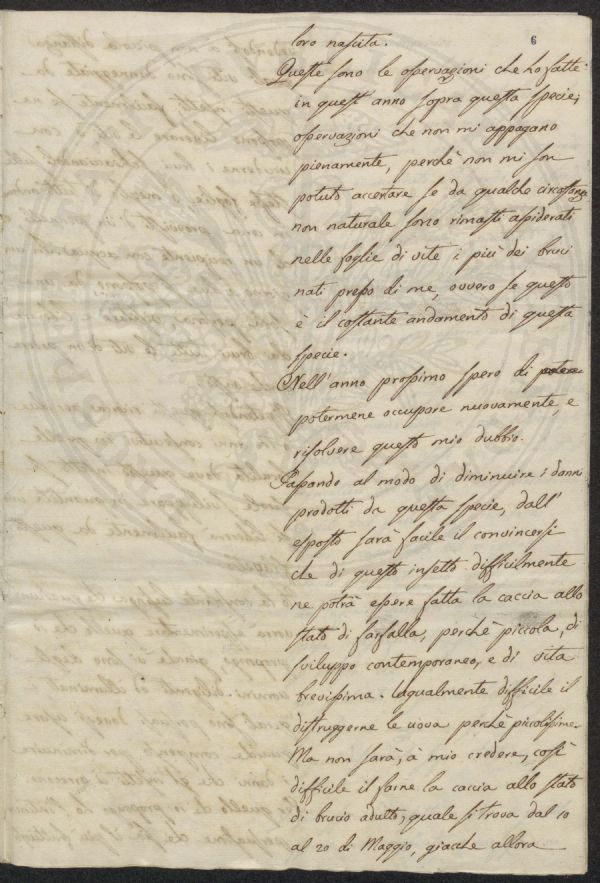 6
loro nascita.
Queste sono le osservazioni che ho fatte
in quest'anno sopra questa specie;
osservazioni che non mi appagano
pienamente, perchè non mi son
potuto accertare se da qualche circostanza
non naturale sono rimasti assiderati
nelle foglie di vite i più dei bruci
nati presso di me, ovvero se questo
è il costante andamento di questa
specie.
Nell'anno prossimo spero di
potermene occupare nuovamente, e
risolvere questo mio dubbio.
Passando al modo di diminuire i danni
prodotti da questa specie, dall'
esposto sarà facile il convincersi
che di questo insetto difficilmente
ne potrà essere fatta la caccia allo
stato di farfalla, perchè piccola, di
sviluppo contemporaneo, e di vita
brevissima. Ugualmente difficile il
distruggerne le uova perchè piccolissime.
Ma non sarà, à mio credere, così
difficile il farne la caccia allo stato
di brucio adulto, quale si trova dal 10
al 20 di Maggio, giacchè allora